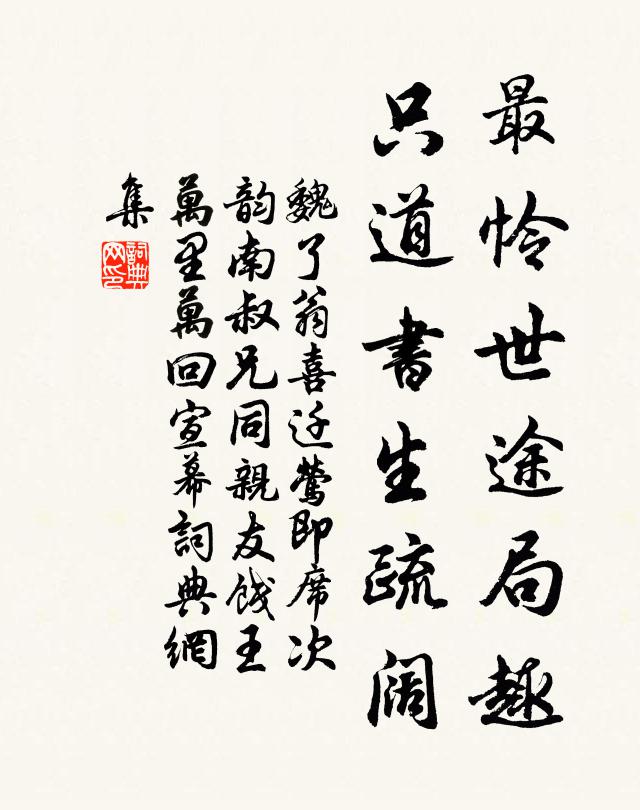 最怜世途局趣
只道書生疏阔
魏了翁喜迁鶯即席次
韵南叔兄同親友餞王
萬里萬回宣幕詞典網
集
詞典網印